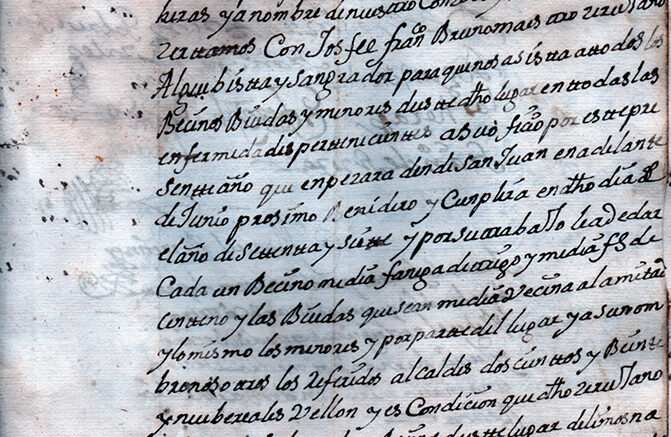 y a nombre de nuestro Con
Con Josfee fran. Bruno maestro zerujano
Alguibistta y sangrador para quinos asistta a ttodos los
Becinos Biudas y menores dustte dho lugar en ttodas las
enfermedadis pertenicinttes a su ofiçio por estte pre
sentte año que enpezara dendi san Juan en adelante
di Junio prosimo Benidero y Cunplira en dho dia de
el año di settentta y siette y por su ttrabajo le a de dar
Cada un Becino media faniga de trigo y media fg de
cintteno y las Biudas qui sean media Vecina a la mitad
y lo mismo los menores y por partte del lugar y a su nom
bre nosottros los referidos alcaldis dos cinttos y Beintte
y nuebe reales Vellon y es Condicion que dho zerujano
lugar de limosna